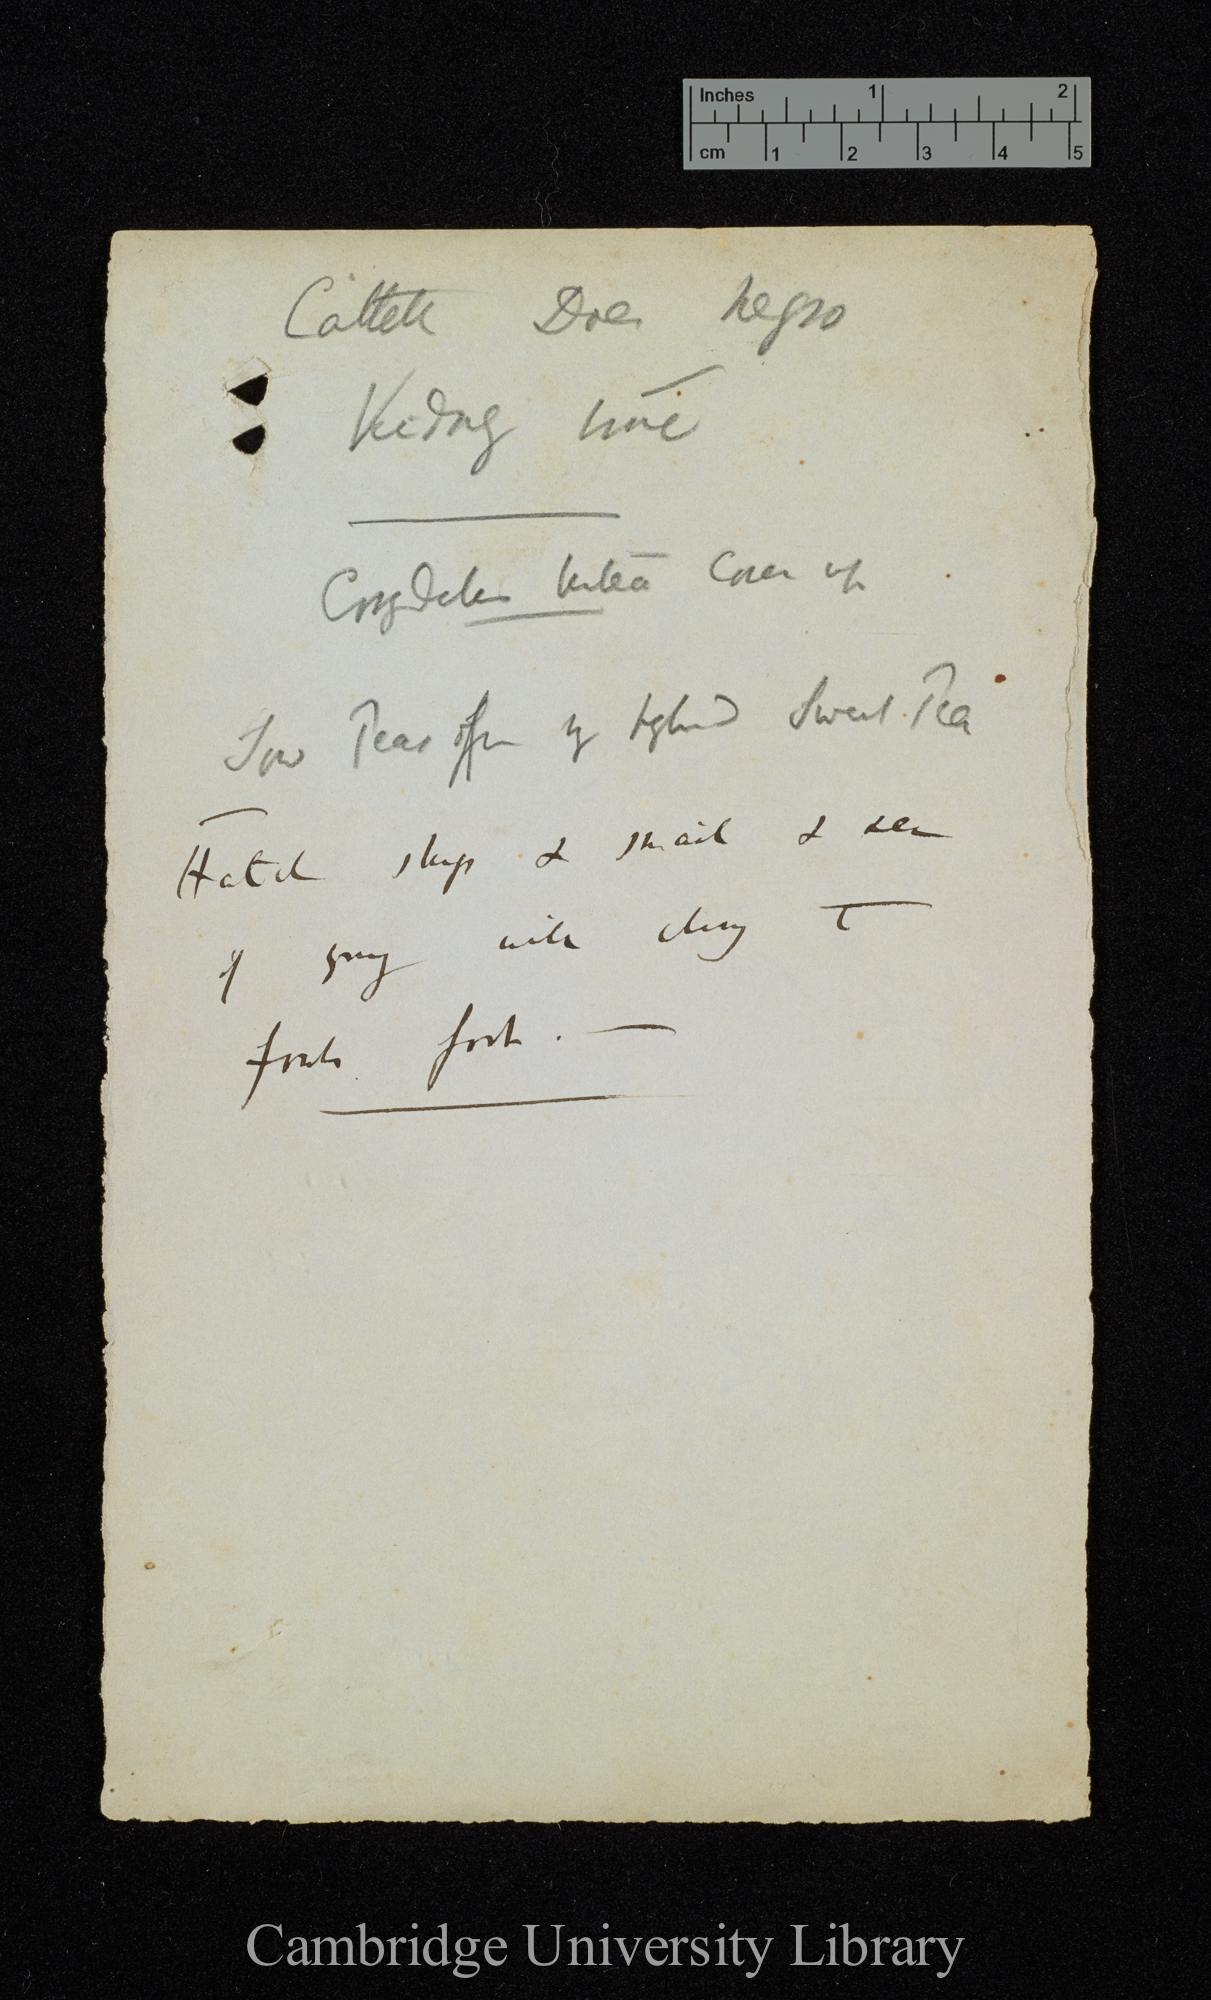 Inches 1 2
cm 1 2 3 4 5
Cattell Does Negro
Kidney
Corydalis lutea Cover up
Sow Peas off by Hybrid Sweet Pea
Hatch slugs & snail & see
if young will cling to
fowls foot. —
Cambridge University Library